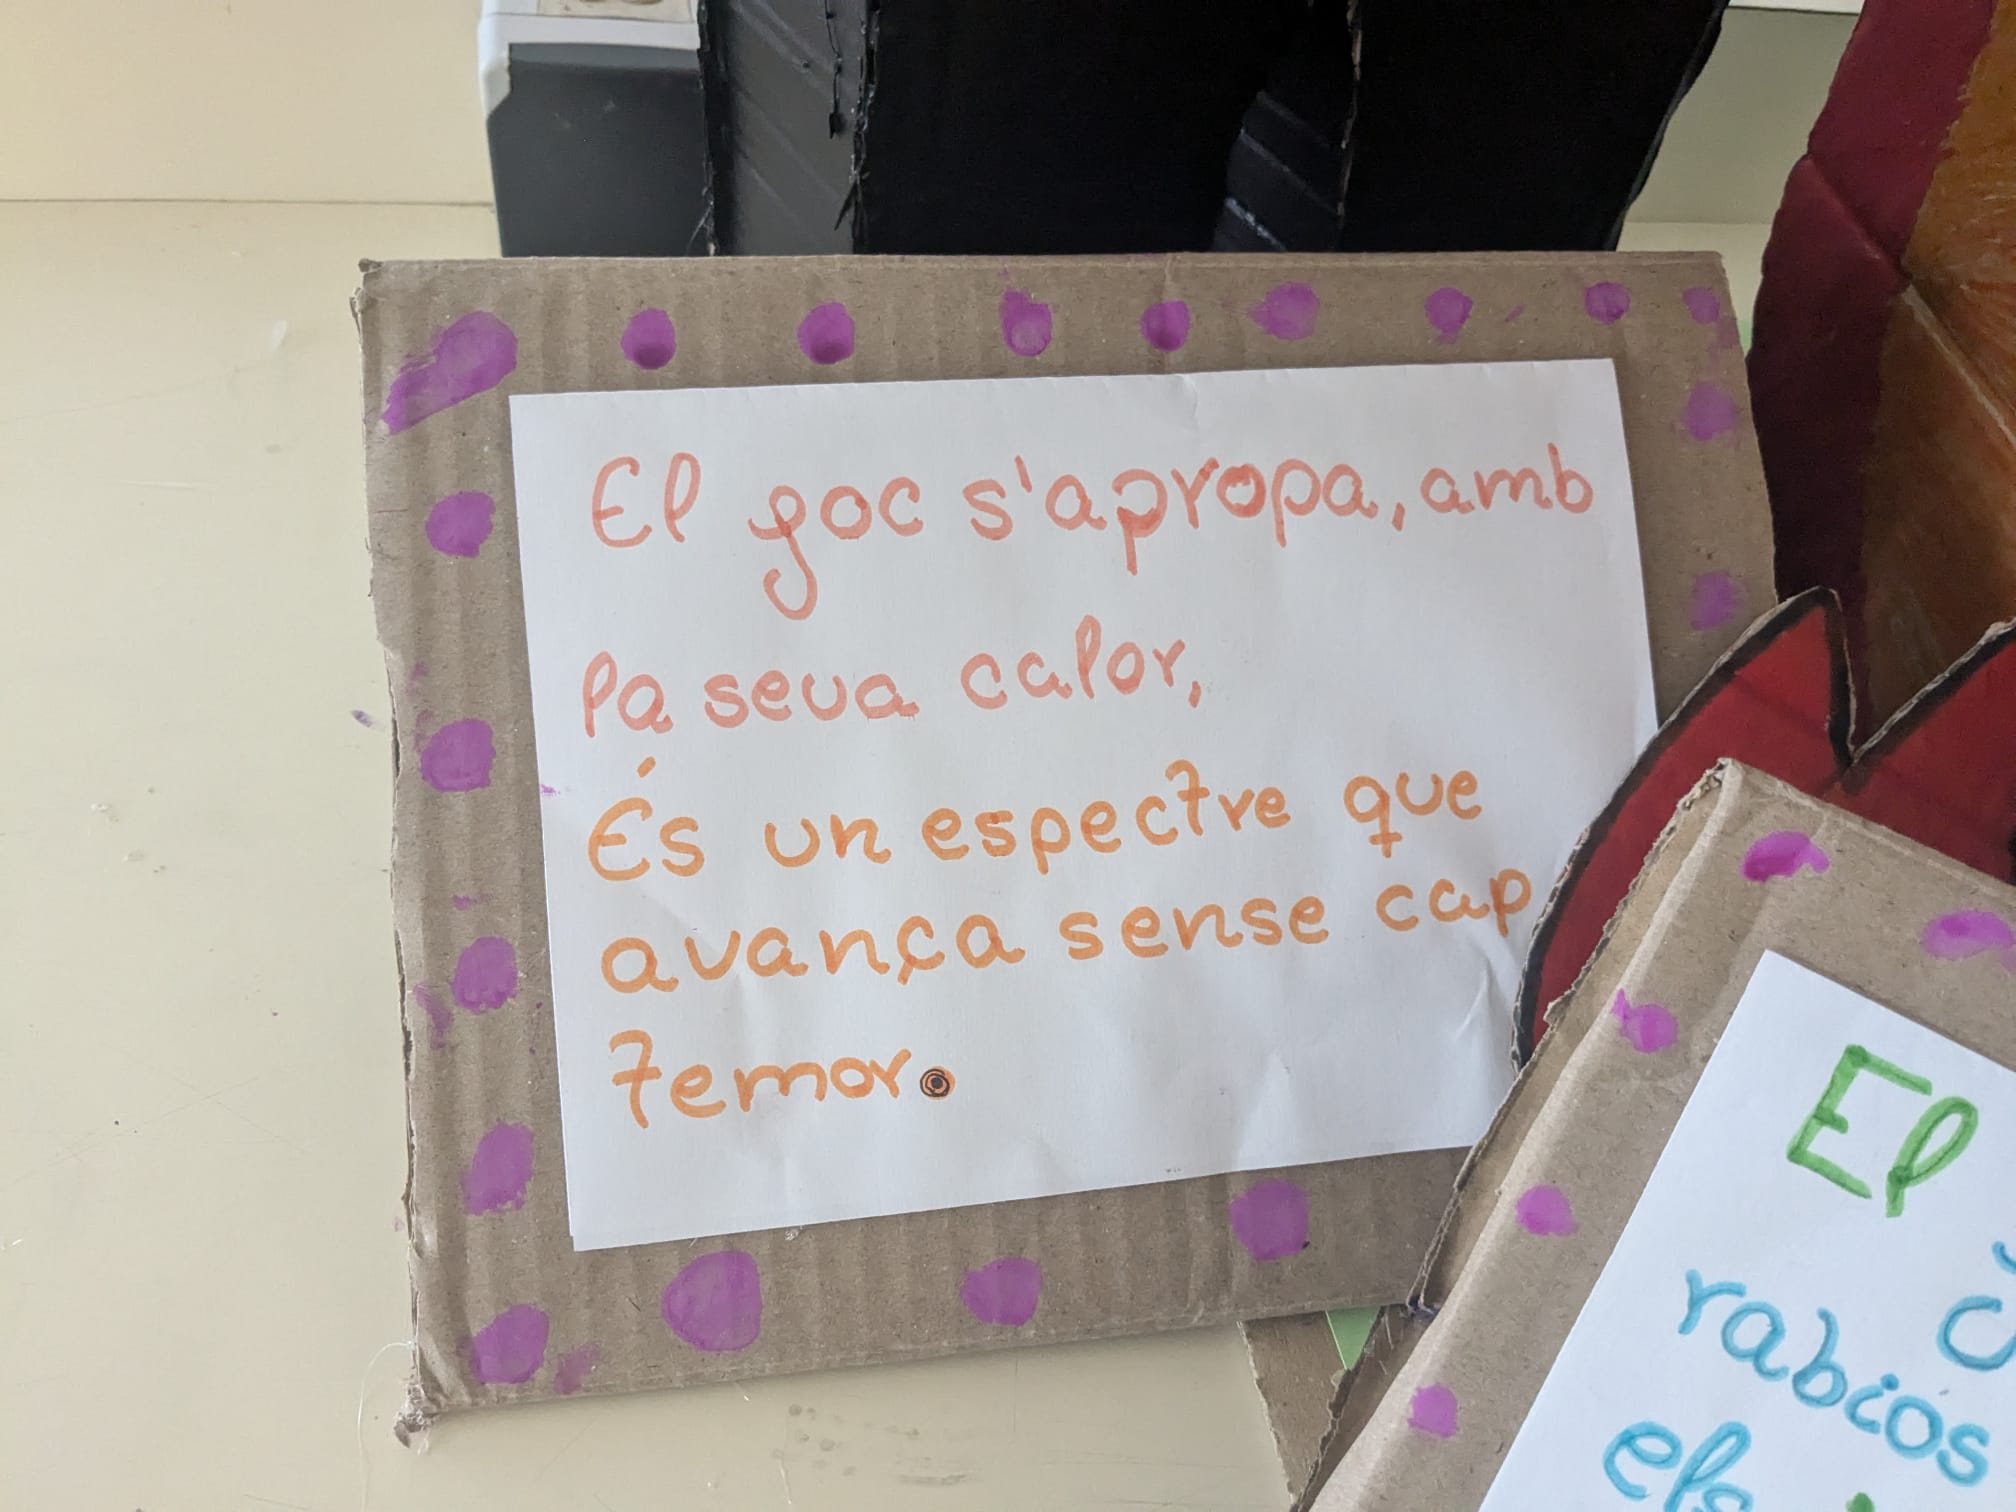 El foc s'apropa, amb
la seua calor,
És un espectre que
avança sense cap
temor.
El
rabiós
els